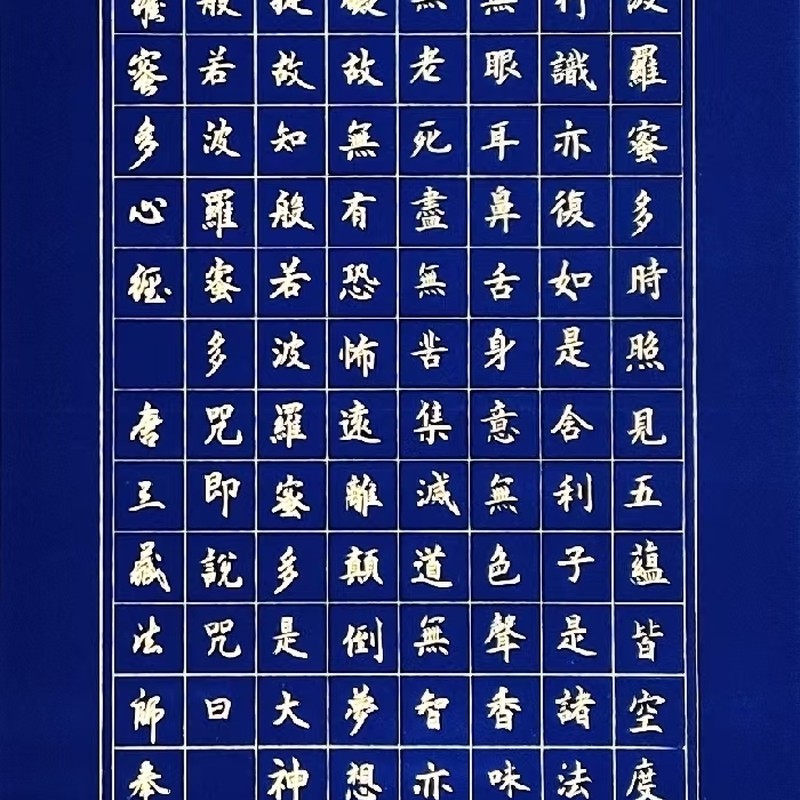 波羅蜜多時照見五蘊皆空度
行識亦復如是舍利子是諸法
無眼耳鼻舌身意無色聲香味
無老死盡無苦集滅道無智亦
礙故無有恐怖遠離顛倒夢想
提故知般若波羅蜜多是大神
般若波羅蜜多咒即說咒曰
羅蜜多心經 唐三藏法師奉